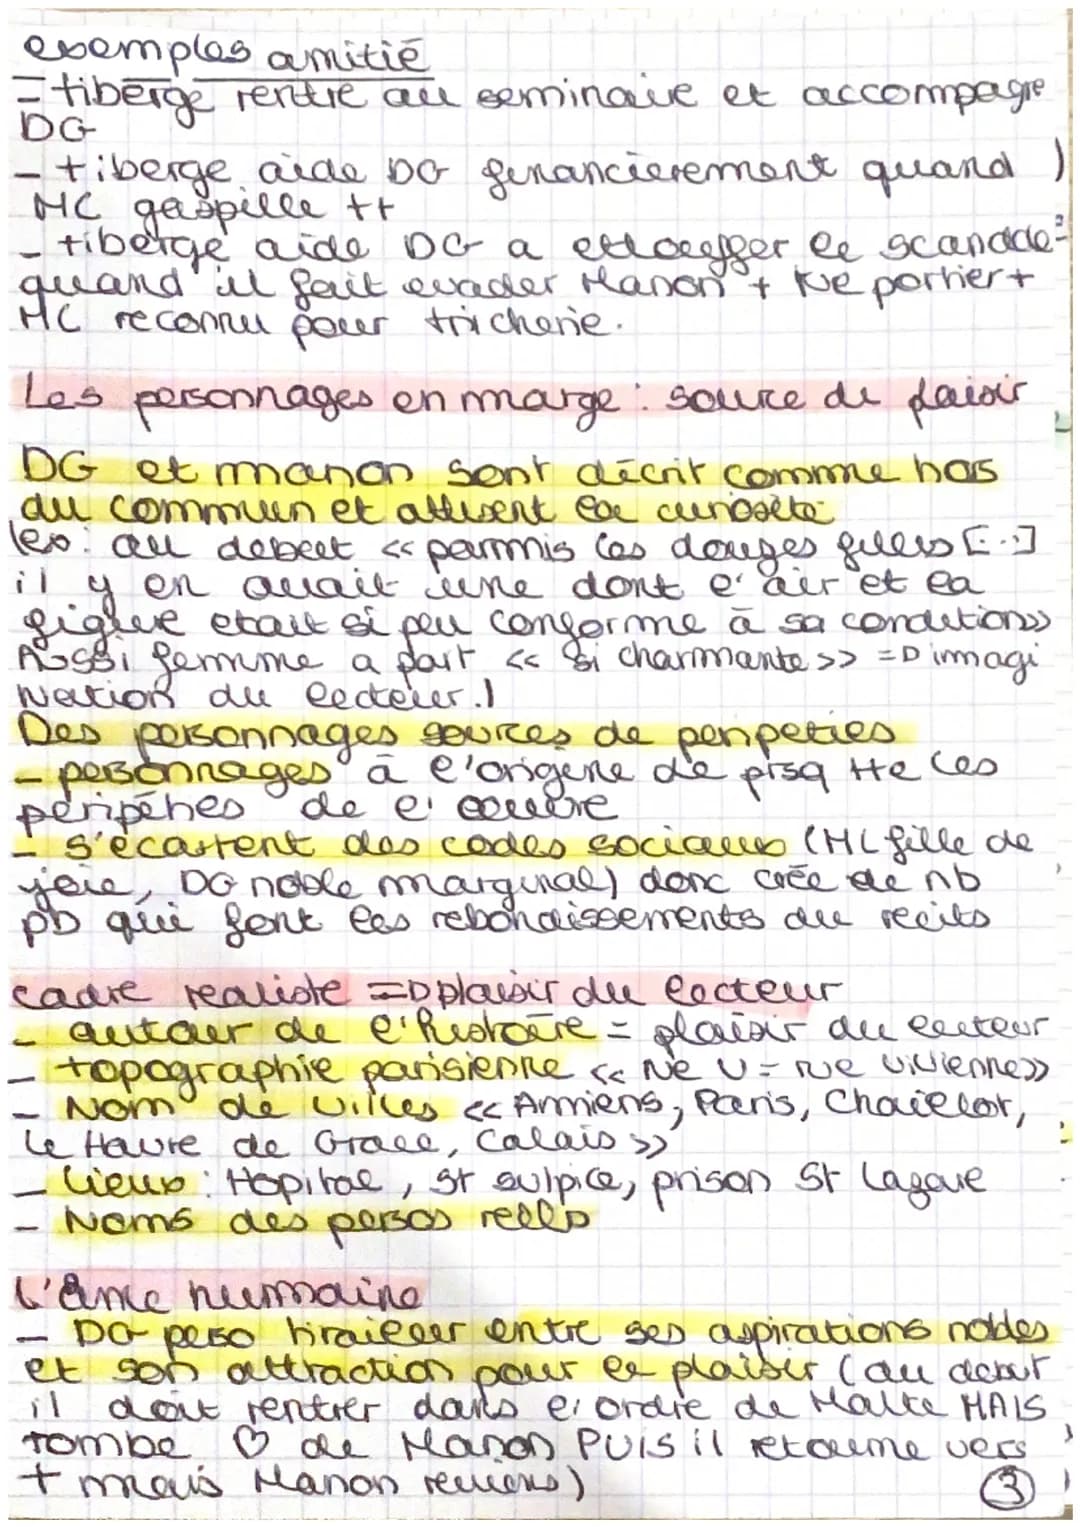 exemples amitié
- tiberge rentre au seminaire et accompagne
DG
- tiberge aide DG financierement quand
MC gaspille tt
- tiberge aide DG a etouffer le scandale
quand il fait evader Manon + tue portier +
MC reconnu pour tricherie.
Les personnages en marge : source de plaisir
DG et manon sont décrit comme hors
du commun et attisent la curiosite
(ex: au debut << parmis les douzes filles [...]
il y en avait une dont l'air et la
figure etait si peu conforme à sa condition>>
Aussi femme a part << si charmante >> => immagi
nation du lecteur.)
Des personnages sources de peripeties
- personnages à l'origine de prsq tte les
péripéties de l'oeuvre
- s'écartent des codes sociaux (ML fille de
joie, DG noble marginal) donc crée de nb
pb qui font les rebondissements du recits
cadre realiste => plaisir du lecteur
- autour de l'histoire = plaisir du lecteur
- topographie parisienne << Ne V = rue Vivienne>>
- Nom de villes << Amiens, Paris, Chaillot,
Le Havre de Grace, Calais >>
- lieux : Hopital, St sulpice, prison St Lazare
- Noms des persos reels
L'âme humaine
- DG perso tirailler entre ses aspirations nobles
et son attraction pour le plaisir (au debut
il doit rentrer dans l'ordre de Malte MAIS
tombe ♡ de Manon PUIS il retourne vers
+ mais Manon reviens)
3